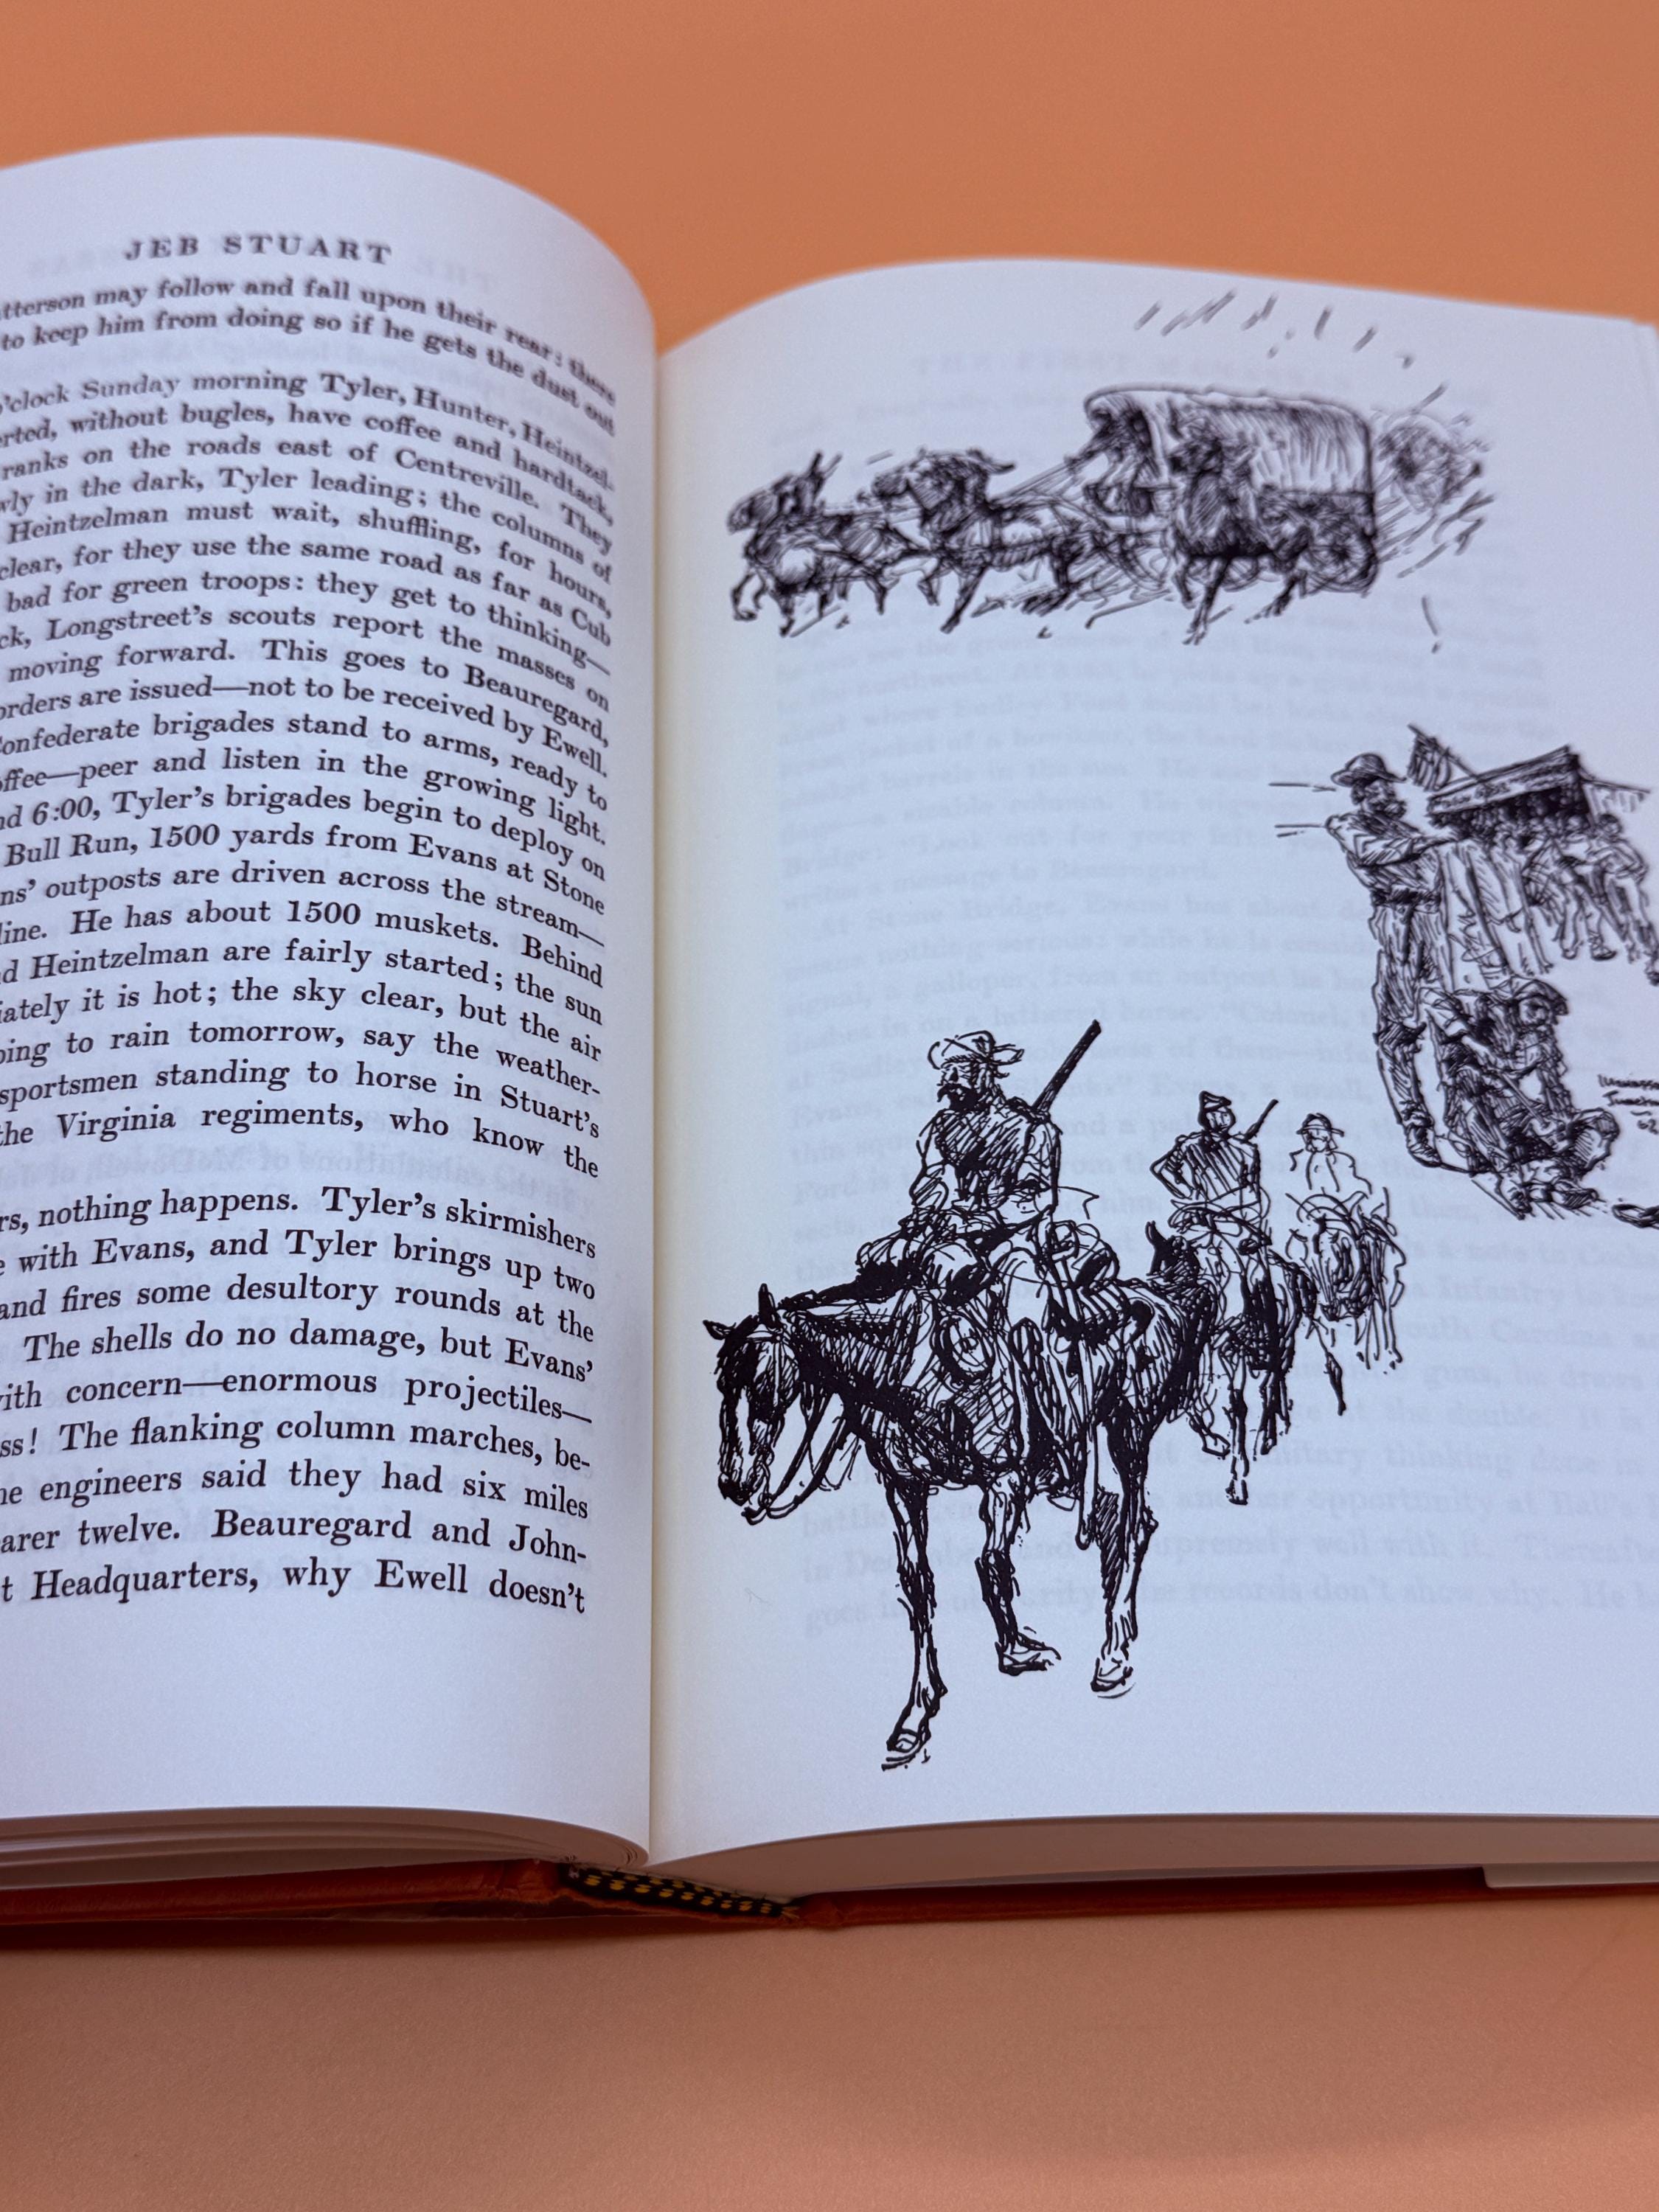 JEB STUART
may follow and fall upon their rear: there
to keep him from doing so if he gets the dust out
o'clock Sunday morning Tyler, Hunter, Heintzel-
without bugles, have coffee and hardtack,
ranks on the roads east of Centreville. They
in the dark, Tyler leading; the columns of
Heintzelman must wait, shuffling, for hours,
clear, for they use the same road as far as Cub
bad for green troops: they get to thinking—
Longstreet's scouts report the masses on
moving forward. This goes to Beauregard,
orders are issued—not to be received by Ewell.
Confederate brigades stand to arms, ready to
—peer and listen in the growing light.
6:00, Tyler's brigades begin to deploy on
Bull Run, 1500 yards from Evans at Stone
outposts are driven across the stream—
line. He has about 1500 muskets. Behind
Heintzelman are fairly started; the sun
it is hot; the sky clear, but the air
to rain tomorrow, say the weather-
sportsmen standing to horse in Stuart's
the Virginia regiments, who know the
nothing happens. Tyler's skirmishers
with Evans, and Tyler brings up two
and fires some desultory rounds at the
The shells do no damage, but Evans'
with concern—enormous projectiles—
The flanking column marches, be-
engineers said they had six miles
twelve. Beauregard and John-
Headquarters, why Ewell doesn't